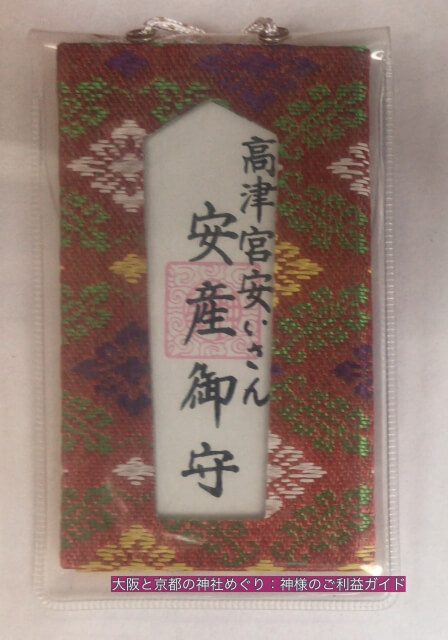 高津宮安いさん
安産御守
大阪と京都の神社めぐり：神様のご利益ガイド